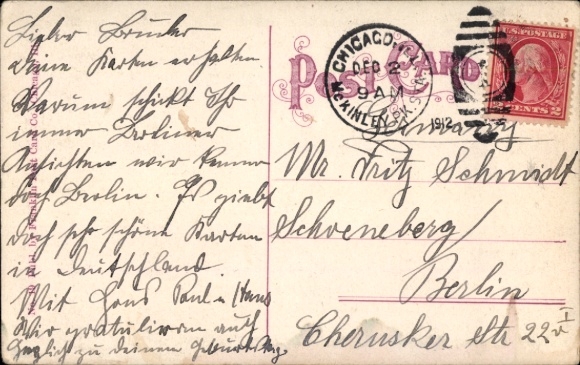 Lieber Bruder
Deine Karten erhalten.
Warum schickt Ihr
immer Berliner
Ansichten wir kennen
doch Berlin. Es giebt
doch sehr schöne Karten
in Deutschland.
Mit Paul u Hans
Wir gratulieren auch
herzlich zu deinem Geburtstag.
POST CARD
CHICAGO, ILL. U.S.
DEC 2
9 AM
MCKINLEY PK.
1912
U.S. POSTAGE
CENTS 2
Germany
Mr. Fritz Schmidt
Schoeneberg/
Berlin
Cherusker Str 22 I